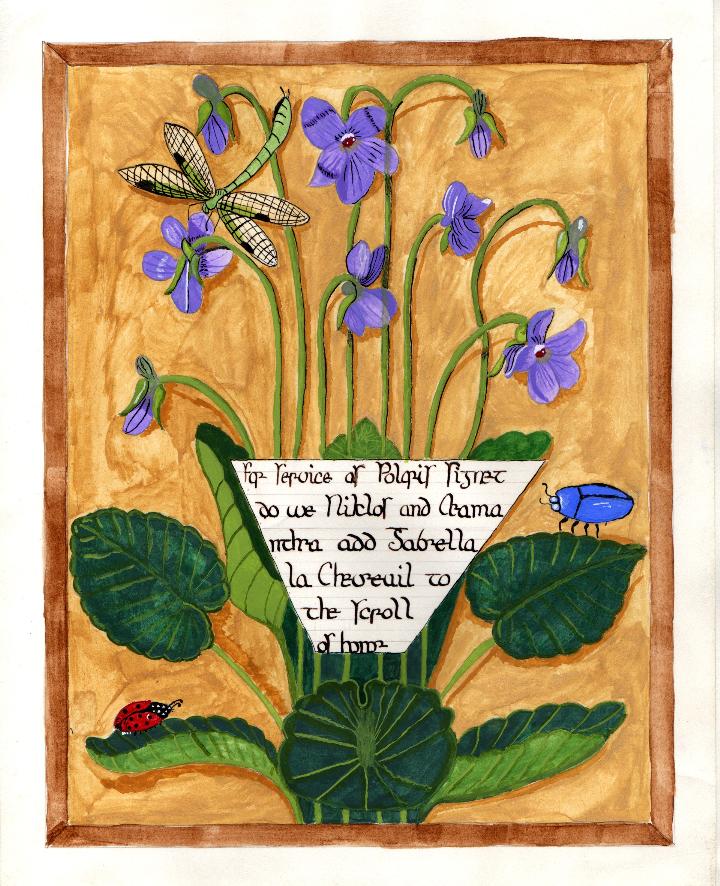 for service as Polaris Signet
do we Niklos and Ceama
ntha add Isabrella
la Chevreuil to
the scroll
of honor